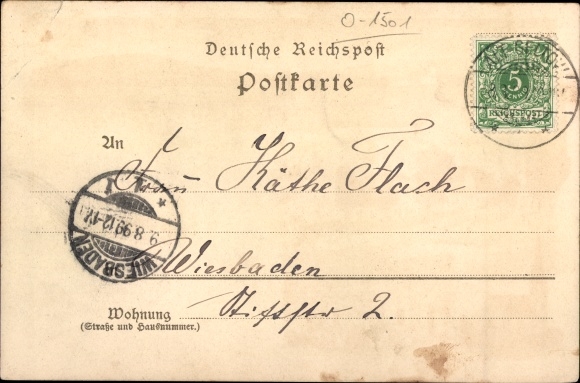 O-1501
Deutsche Reichspost
Postkarte
5
REICHSPOST
An
Frau Käthe Flach
9.8.99.12-1N.
WIESBADEN
Wiesbaden
Stiftstr 2.
Wohnung
(Straße und Hausnummer.)